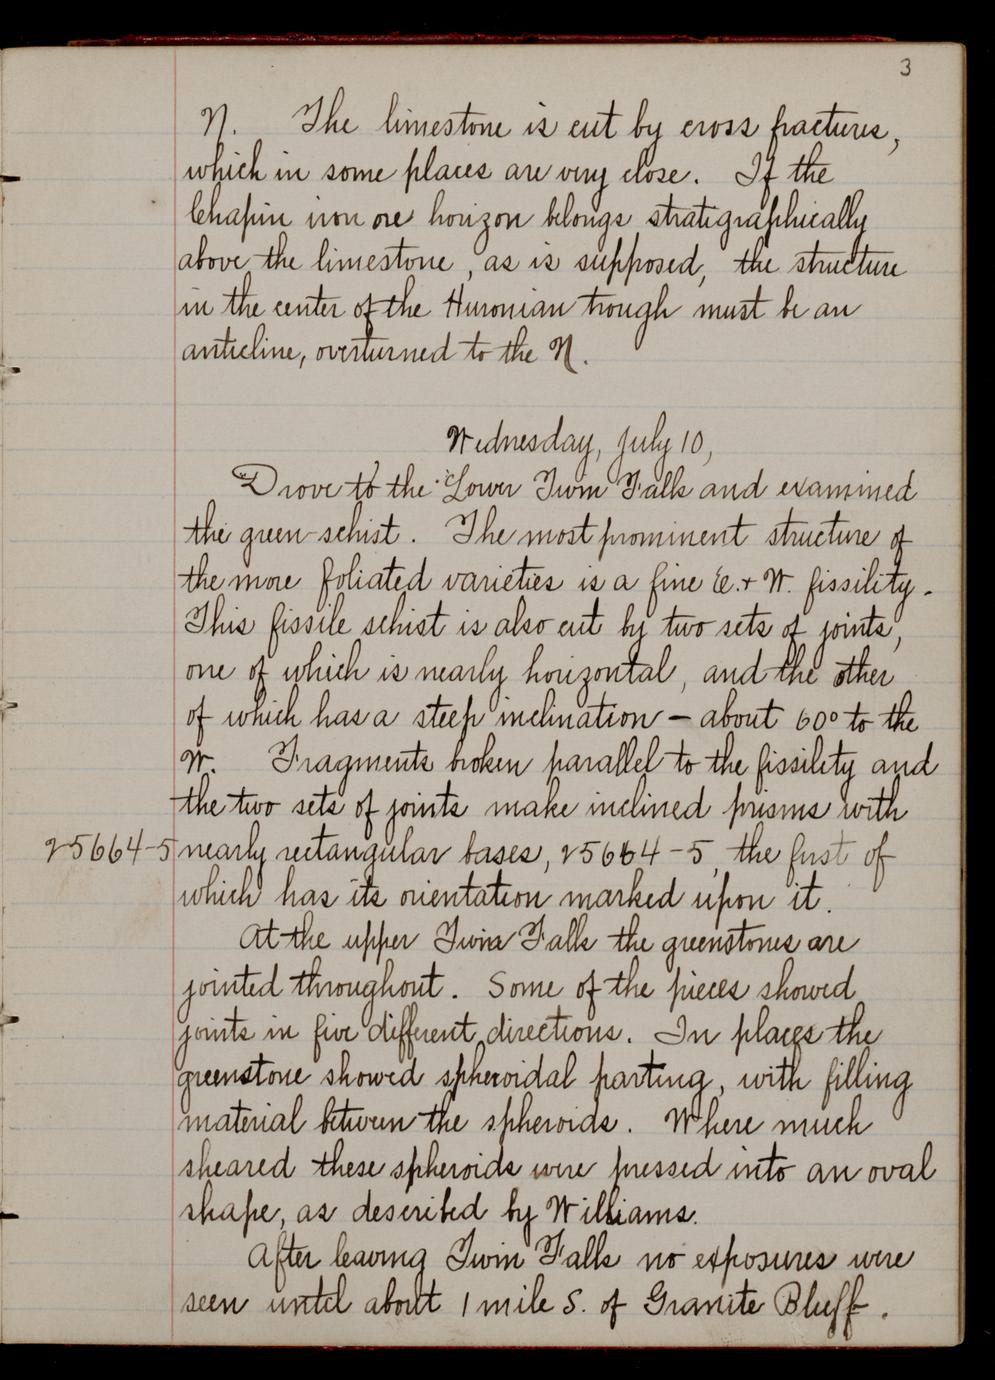 3
N. The limestone is cut by cross fractures,
which in some places are very close. If the
Chapin iron ore horizon belongs stratigraphically
above the limestone, as is supposed, the structure
in the center of the Huronian trough must be an
anticline, overturned to the N.
Wednesday, July 10,
Drove to the Lower Twin Falls and examined
the green-schist. The most prominent structure of
the more foliated varieties is a fine E. + W. fissility.
This fissile schist is also cut by two sets of joints,
one of which is nearly horizontal, and the other
of which has a steep inclination — about 60° to the
W. Fragments broken parallel to the fissility and
the two sets of joints make inclined prisms with
25664-5 nearly rectangular bases, 25664-5, the first of
which has its orientation marked upon it.
At the upper Twin Falls the greenstones are
jointed throughout. Some of the pieces showed
joints in five different directions. In places the
greenstone showed spheroidal parting, with filling
material between the spheroids. Where much
sheared these spheroids were pressed into an oval
shape, as described by Williams.
After leaving Twin Falls no exposures were
seen until about 1 mile S. of Granite Bluff.